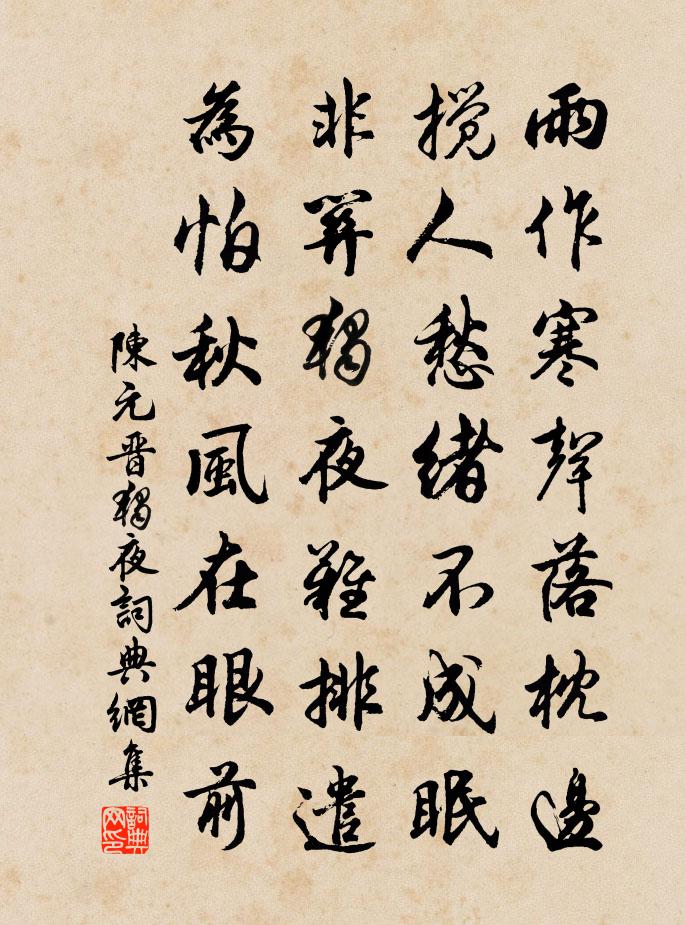 雨作寒聲落枕邊
攪人愁緒不成眠
非關獨夜難排遣
為怕秋風在眼前
陳元晋獨夜詞典網集
詞典網印